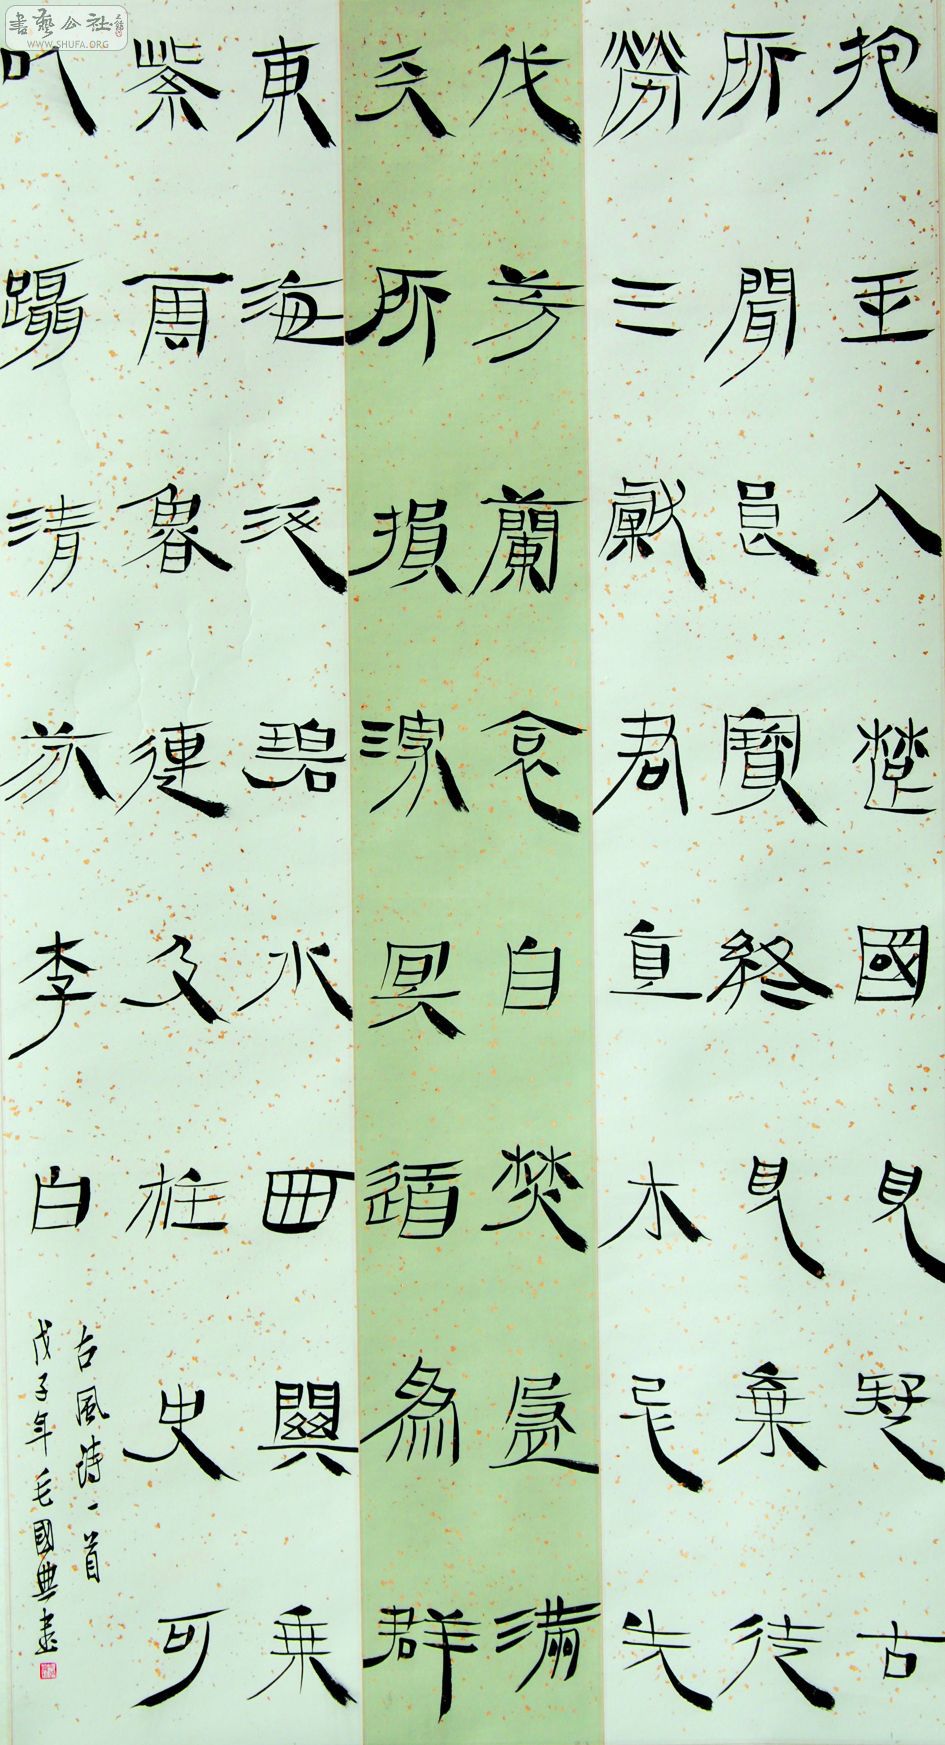 抱玉入楚國見疑古
所聞良寶終見棄徒
勞三獻君直木忌先
伐芳蘭哀自焚盈滿
天所損沉冥道為群
東海泛碧水西關乘
紫雲魯連及柱史可
以躡清芬李白
古風詩一首
戊子年毛國典書
書藝公社
WWW.SHUFA.ORG